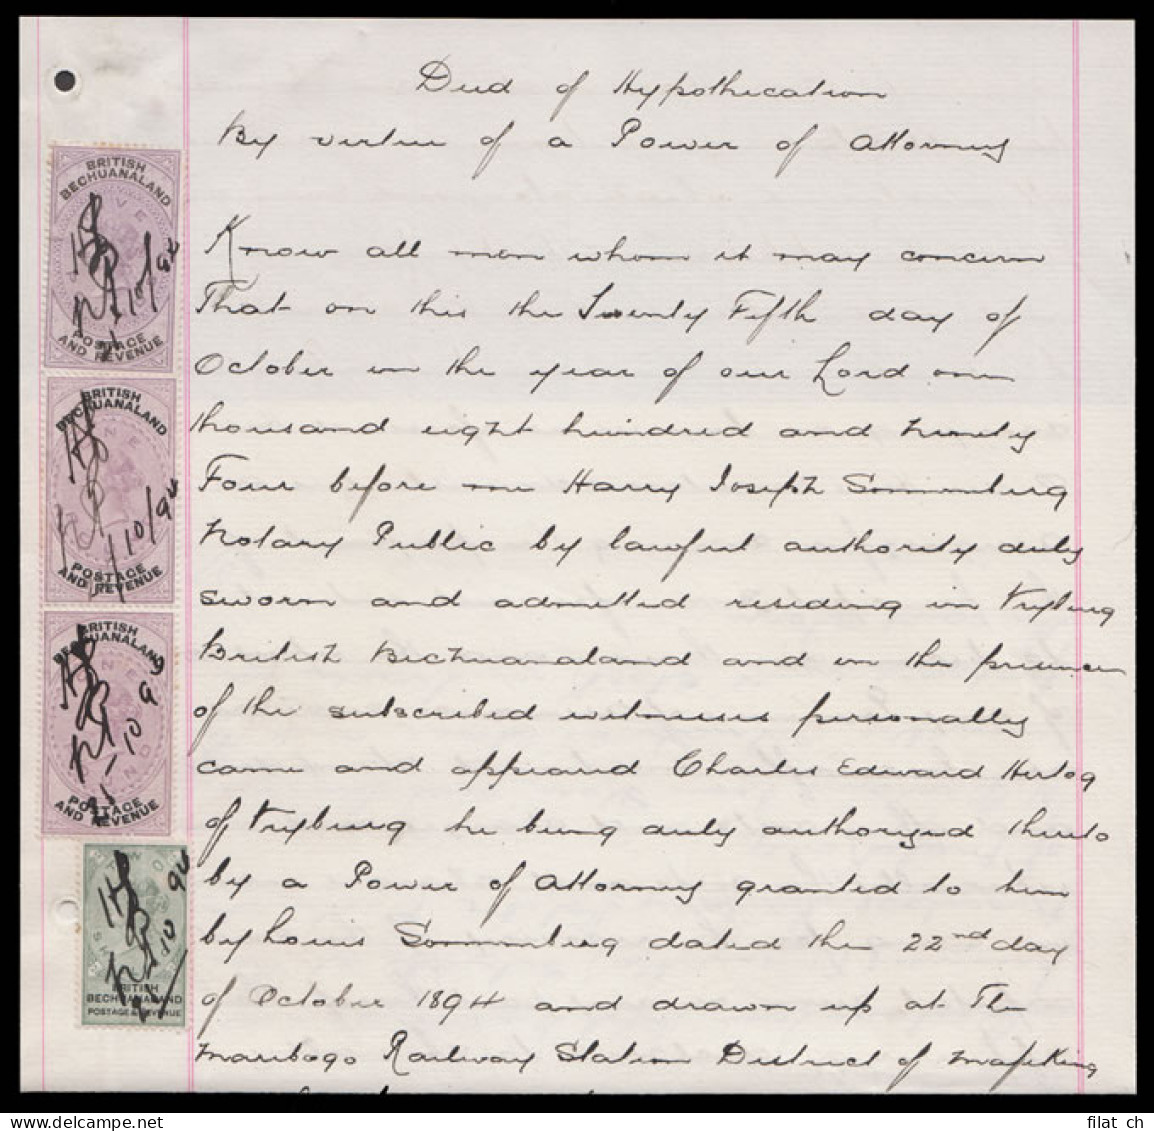 Deed of Hypothecation
By virtue of a Power of Attorney
Know all men whom it may concern
That on this the Twenty Fifth day of
October in the year of our Lord one
thousand eight hundred and ninety
Four before me Harry Joseph Sonnenberg
Notary Public by lawful authority duly
sworn and admitted residing in Vryburg
British Bechuanaland and in the presence
of the subscribed witnesses personally
came and appeared Charles Edward Hertog
of Vryburg he being duly authorized thereto
by a Power of Attorney granted to him
by Louis Sonnenberg dated the 22nd day
of October 1894 and drawn up at The
Maribogo Railway Station District of Mafeking
BRITISH
BECHUANALAND
FIVE
POSTAGE
AND REVENUE
BRITISH
BECHUANALAND
ONE
POSTAGE
AND REVENUE
BRITISH
BECHUANALAND
ONE
POSTAGE
AND REVENUE
TWO
BRITISH
BECHUANALAND
POSTAGE & REVENUE
filat ch